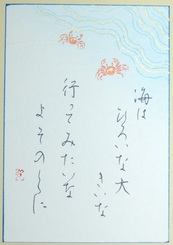 海は
ひろいな大
きいな
行ってみたいな
よそのくに